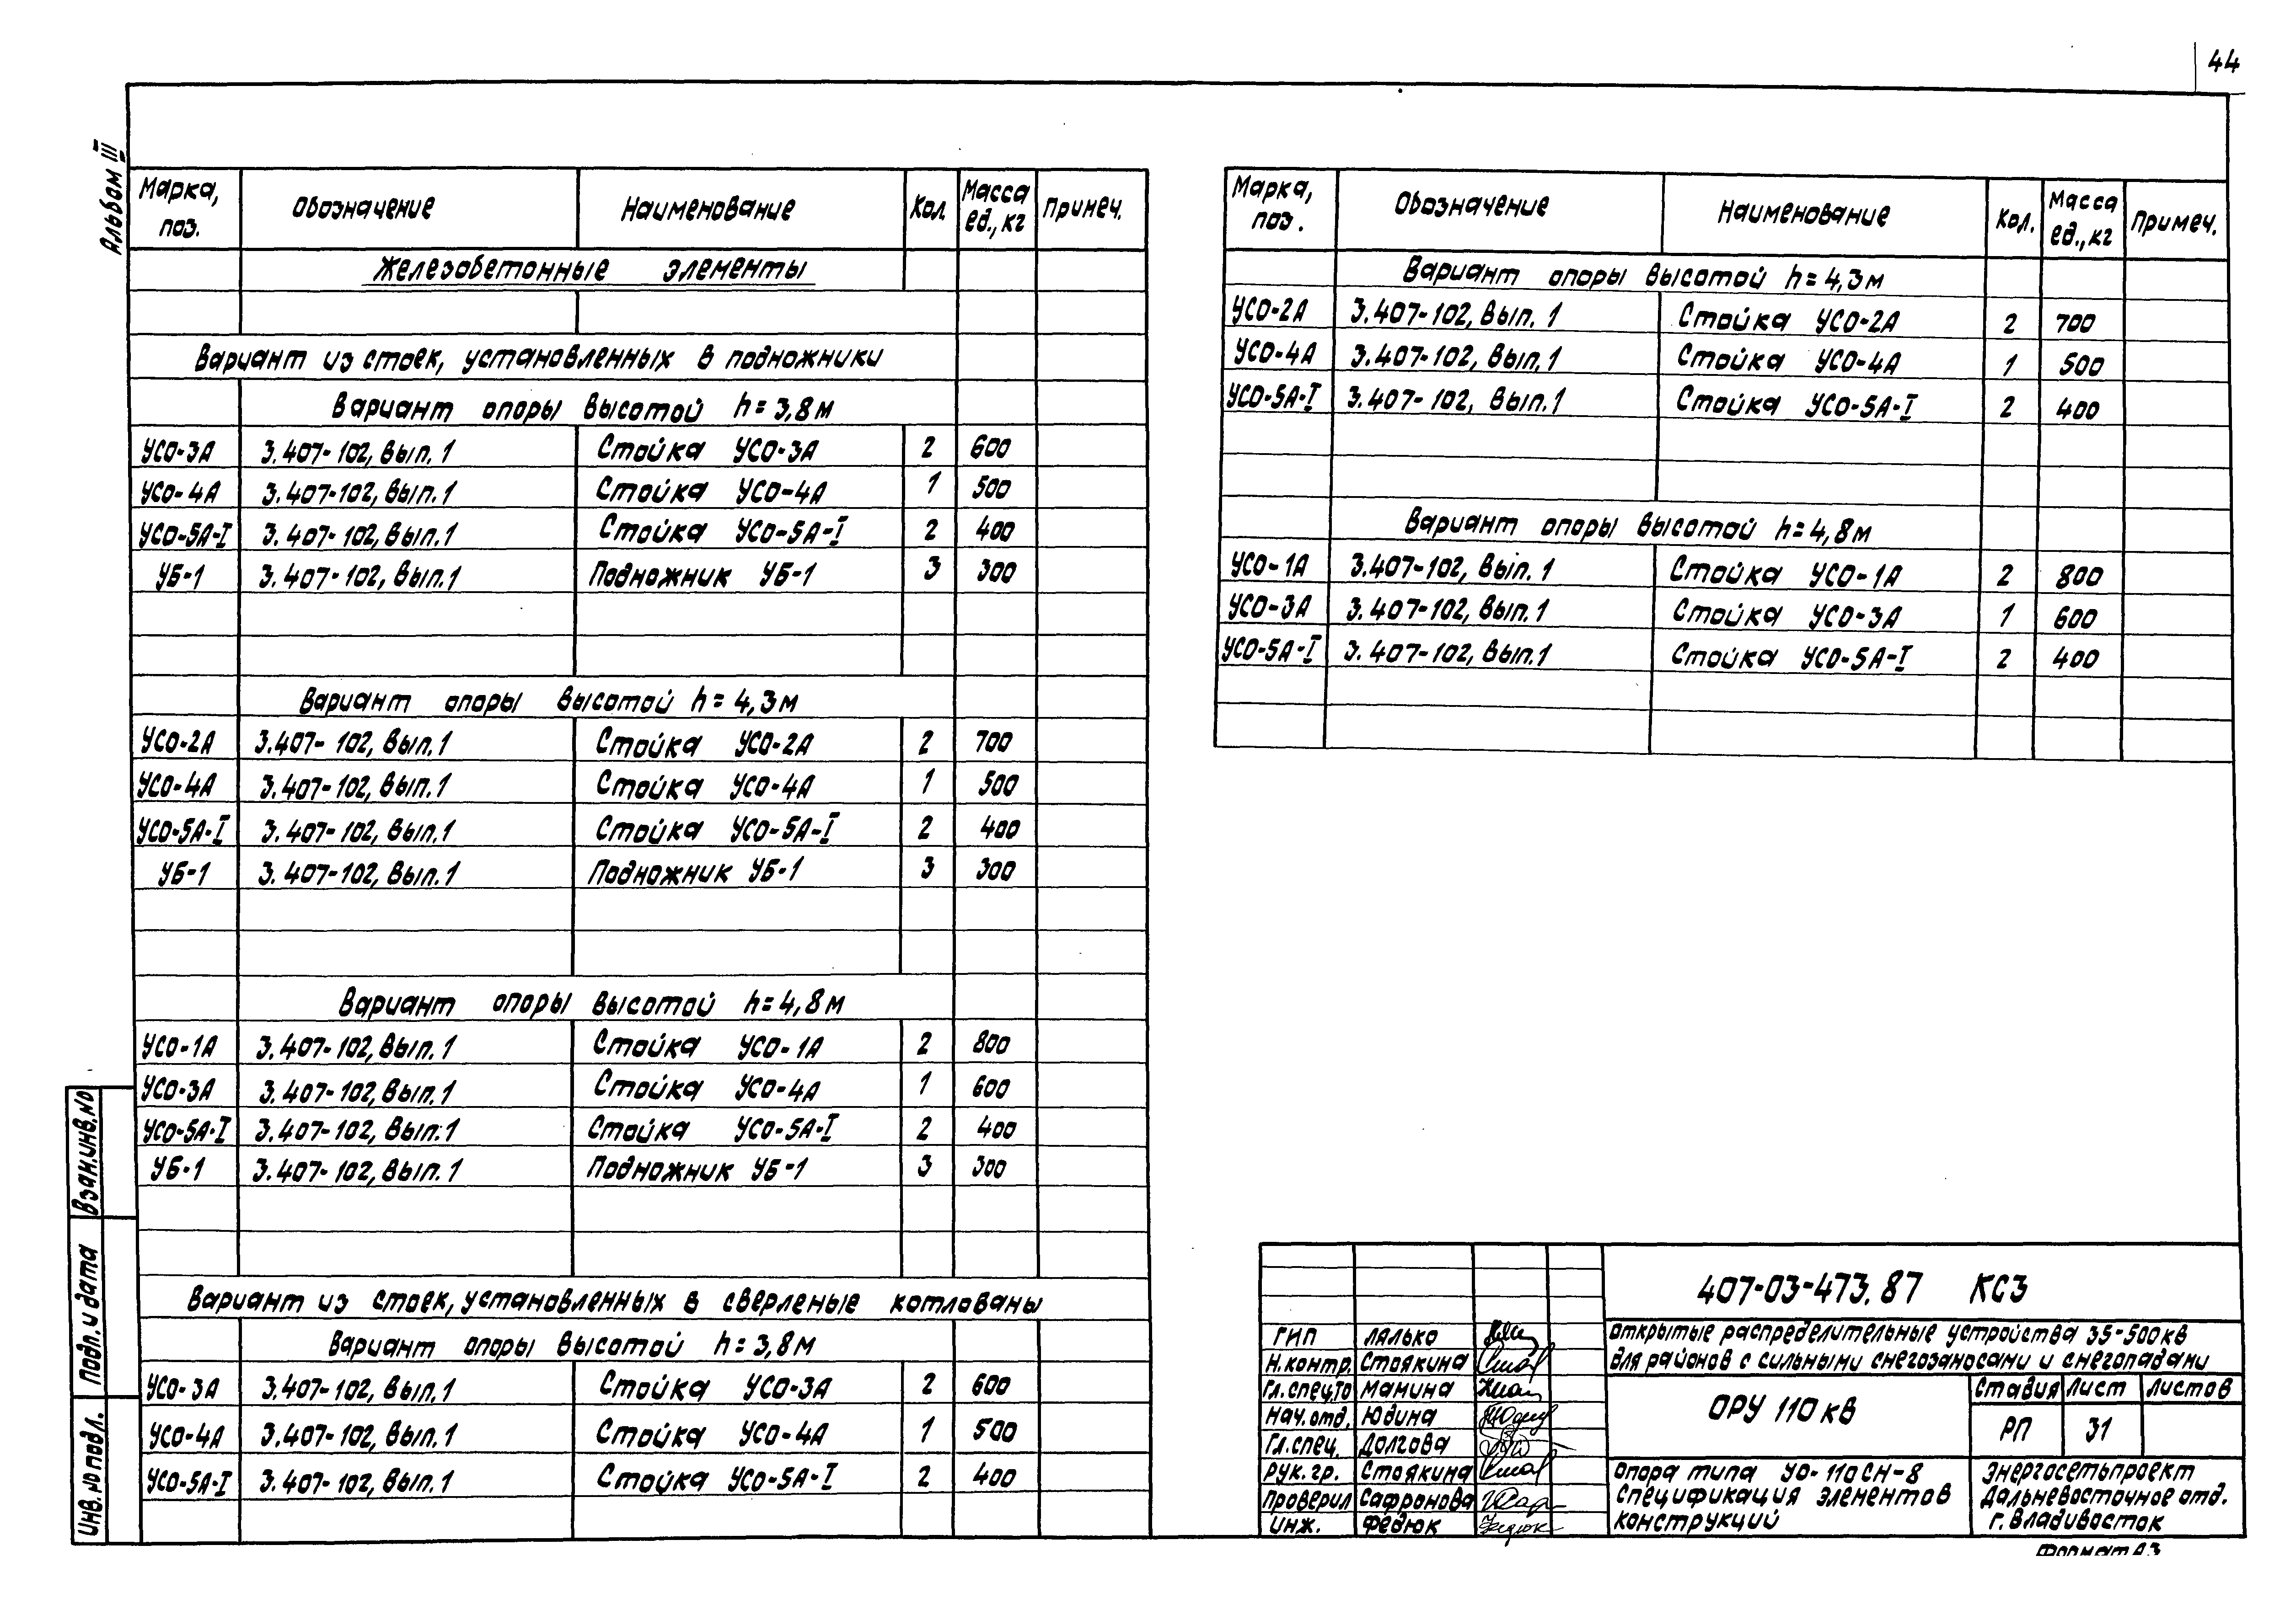 44
Альбом III
Марка, поз. Обозначение Наименование Кол. Масса ед., кг Примеч.
Железобетонные элементы
Вариант из стоек, установленных в подножники
Вариант опоры высотой h = 3,8 м
УСО-3А 3.407-102, Вып. 1 Стойка УСО-3А 2 600
УСО-4А 3.407-102, Вып. 1 Стойка УСО-4А 1 500
УСО-5А-I 3.407-102, Вып. 1 Стойка УСО-5А-I 2 400
УБ-1 3.407-102, Вып. 1 Подножник УБ-1 3 300
Вариант опоры высотой h = 4,3 м
УСО-2А 3.407-102, Вып. 1 Стойка УСО-2А 2 700
УСО-4А 3.407-102, Вып. 1 Стойка УСО-4А 1 500
УСО-5А-I 3.407-102, Вып. 1 Стойка УСО-5А-I 2 400
УБ-1 3.407-102, Вып. 1 Подножник УБ-1 3 300
Вариант опоры высотой h = 4,8 м
УСО-1А 3.407-102, Вып. 1 Стойка УСО-1А 2 800
УСО-3А 3.407-102, Вып. 1 Стойка УСО-4А 1 600
УСО-5А-I 3.407-102, Вып. 1 Стойка УСО-5А-I 2 400
УБ-1 3.407-102, Вып. 1 Подножник УБ-1 3 300
Вариант из стоек, установленных в сверленые котлованы
Вариант опоры высотой h = 3,8 м
УСО-3А 3.407-102, Вып. 1 Стойка УСО-3А 2 600
УСО-4А 3.407-102, Вып. 1 Стойка УСО-4А 1 500
УСО-5А-I 3.407-102, Вып. 1 Стойка УСО-5А-I 2 400
Марка, поз. Обозначение Наименование Кол. Масса ед., кг Примеч.
Вариант опоры высотой h = 4,3 м
УСО-2А 3.407-102, Вып. 1 Стойка УСО-2А 2 700
УСО-4А 3.407-102, Вып. 1 Стойка УСО-4А 1 500
УСО-5А-I 3.407-102, Вып. 1 Стойка УСО-5А-I 2 400
Вариант опоры высотой h = 4,8 м
УСО-1А 3.407-102, Вып. 1 Стойка УСО-1А 2 800
УСО-3А 3.407-102, Вып. 1 Стойка УСО-3А 1 600
УСО-5А-I 3.407-102, Вып. 1 Стойка УСО-5А-I 2 400
Взам.инв.№
Подп. и дата
Инв. № подл.
407-03-473.87 КС3
Открытые распределительные устройства 35-500 кВ
для районов с сильными снегозаносами и снегопадами
ГИП Лалько
Н.контр. Стоякина
Гл.спец.ТО Мамина
Нач.отд. Юдина
Гл.спец. Долгова
Рук.гр. Стоякина
Проверил Сафронова
Инж. Федюк
ОРУ 110 кВ
Стадия Лист Листов
РП 31
Опора типа УО-110СН-8
Спецификация элементов
конструкций
Энергосетьпроект
Дальневосточное отд.
г. Владивосток
Формат А3